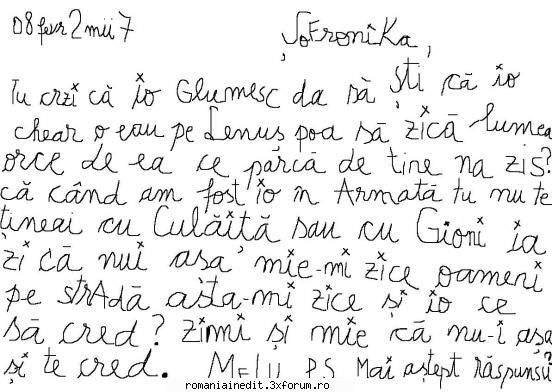 08 fevr 2mii7 ȘoFroniKa,
Tu crzi că io Glumesc da să ști că io
chear o eau pe Lenuș poa să zică lumea
orce de ea ce parcă de tine na zis?
că când am fost io în Armată tu nu te
țineai cu Culăiță sau cu Gioni ia
zi că nui asa mie-mi zice oameni
pe strAdă asta-mi zice și io ce
să cred? zimi și mie că nu-i asa
și te cred. MeLu P.S Mai aștept răspunsu?
romaniainedit.3xforum.ro